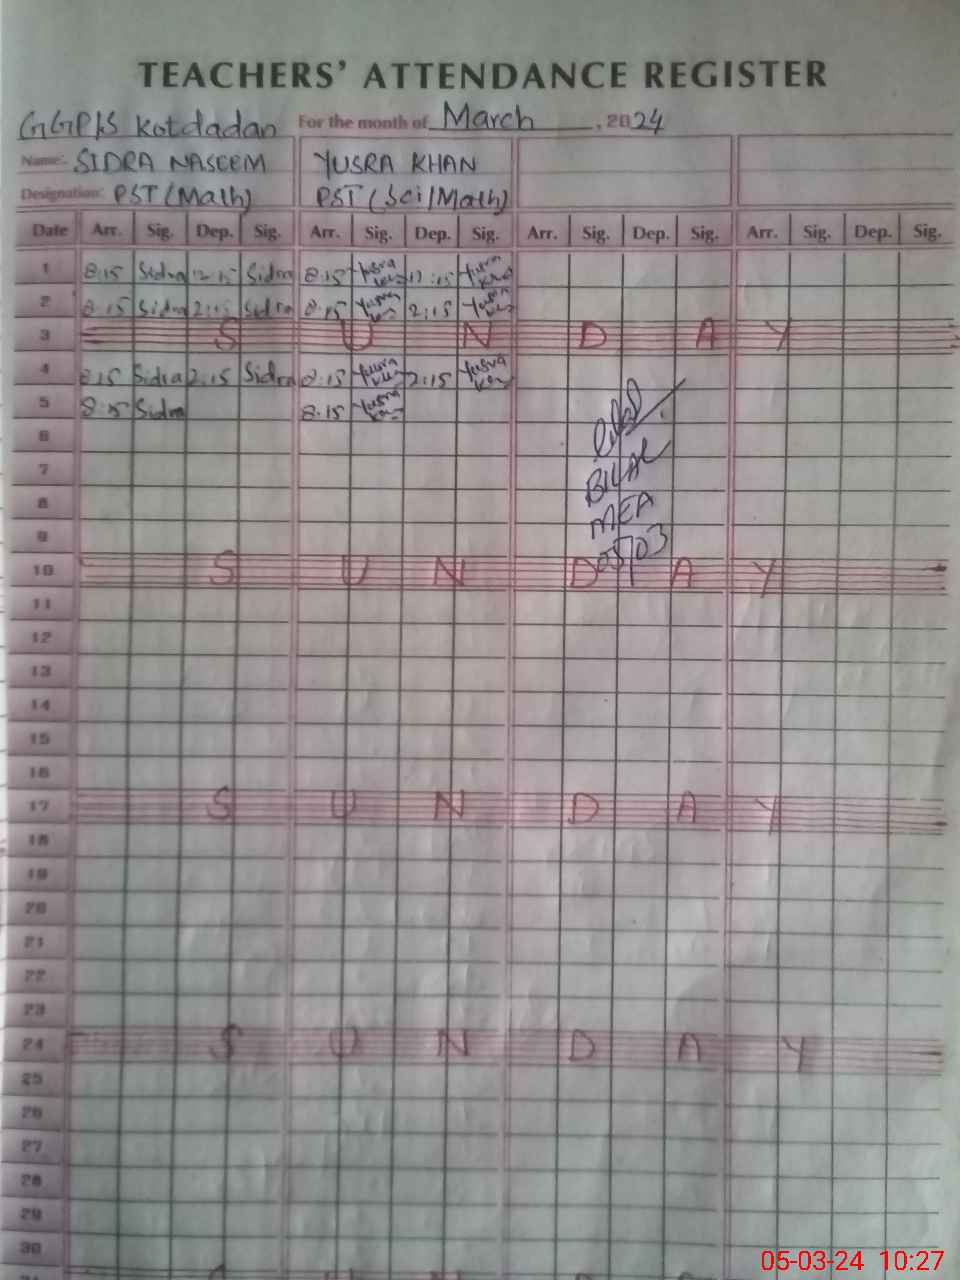 TEACHERS' ATTENDANCE REGISTER
GGPS Kotdadan For the month of March, 2024
Name: SIDRA NASEEM YUSRA KHAN
Designation: PST (Math) PST (Sci/Math)
Date Arr. Sig. Dep. Sig. Arr. Sig. Dep. Sig. Arr. Sig. Dep. Sig. Arr. Sig. Dep. Sig.
1 8:15 Sidra 12:15 Sidra 8:15 Yusra Khan 12:15 Yusra Khan
2 8:15 Sidra 2:15 Sidra 8:15 Yusra 2:15 Yusra
3 S U N D A Y
4 8:15 Sidra 2:15 Sidra 8:15 Yusra 2:15 Yusra
5 8:15 Sidra 8:15 Yusra
6
7 BILAL
8 MEA
9 05/03
10 S U N D A Y
11
12
13
14
15
16
17 S U N D A Y
18
19
20
21
22
23
24 S U N D A Y
25
26
27
28
29
30
05-03-24 10:27